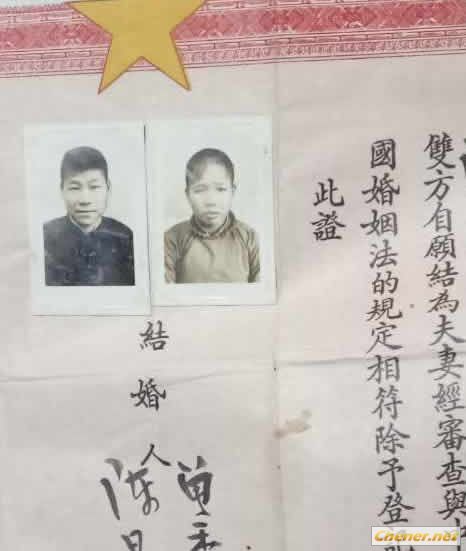 雙方自願結為夫妻經審查與
國婚姻法的規定相符除予登
此證
結婚人
Chener.net